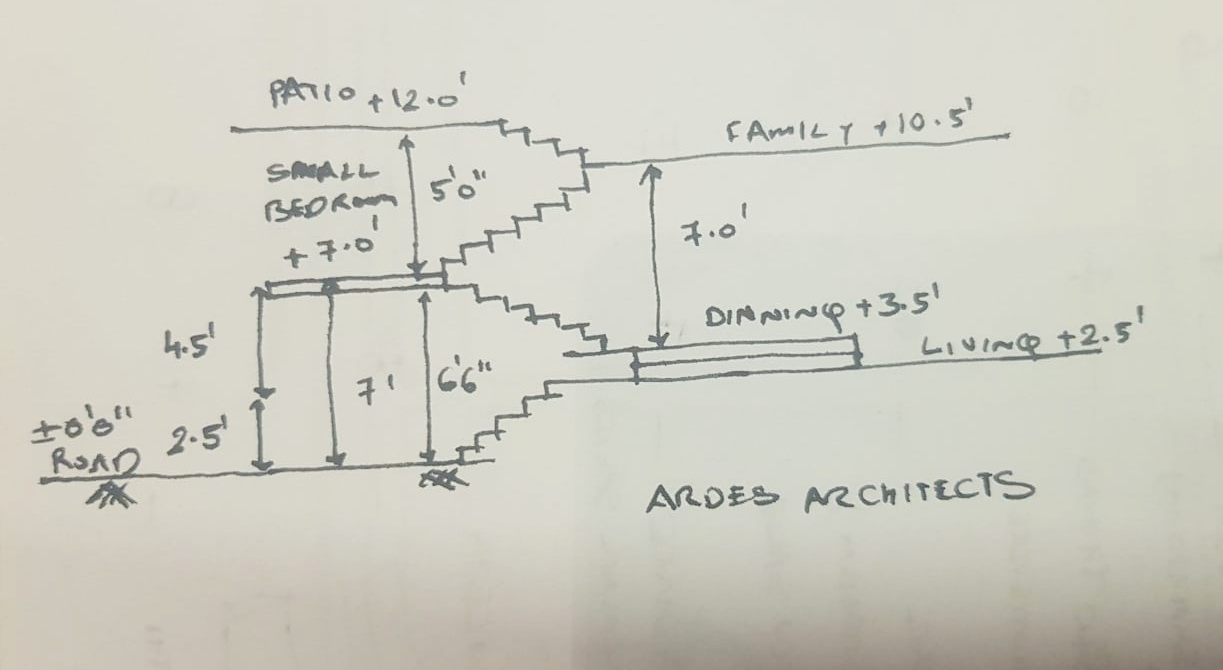 PATIO +12.0'
FAMILY +10.5'
SMALL
BEDROOM
+ 7.0'
5'0"
7.0'
DINNING +3.5'
LIVING +2.5'
4.5'
7'
6'6"
±0'0"
ROAD
2.5'
ARDES ARCHITECTS